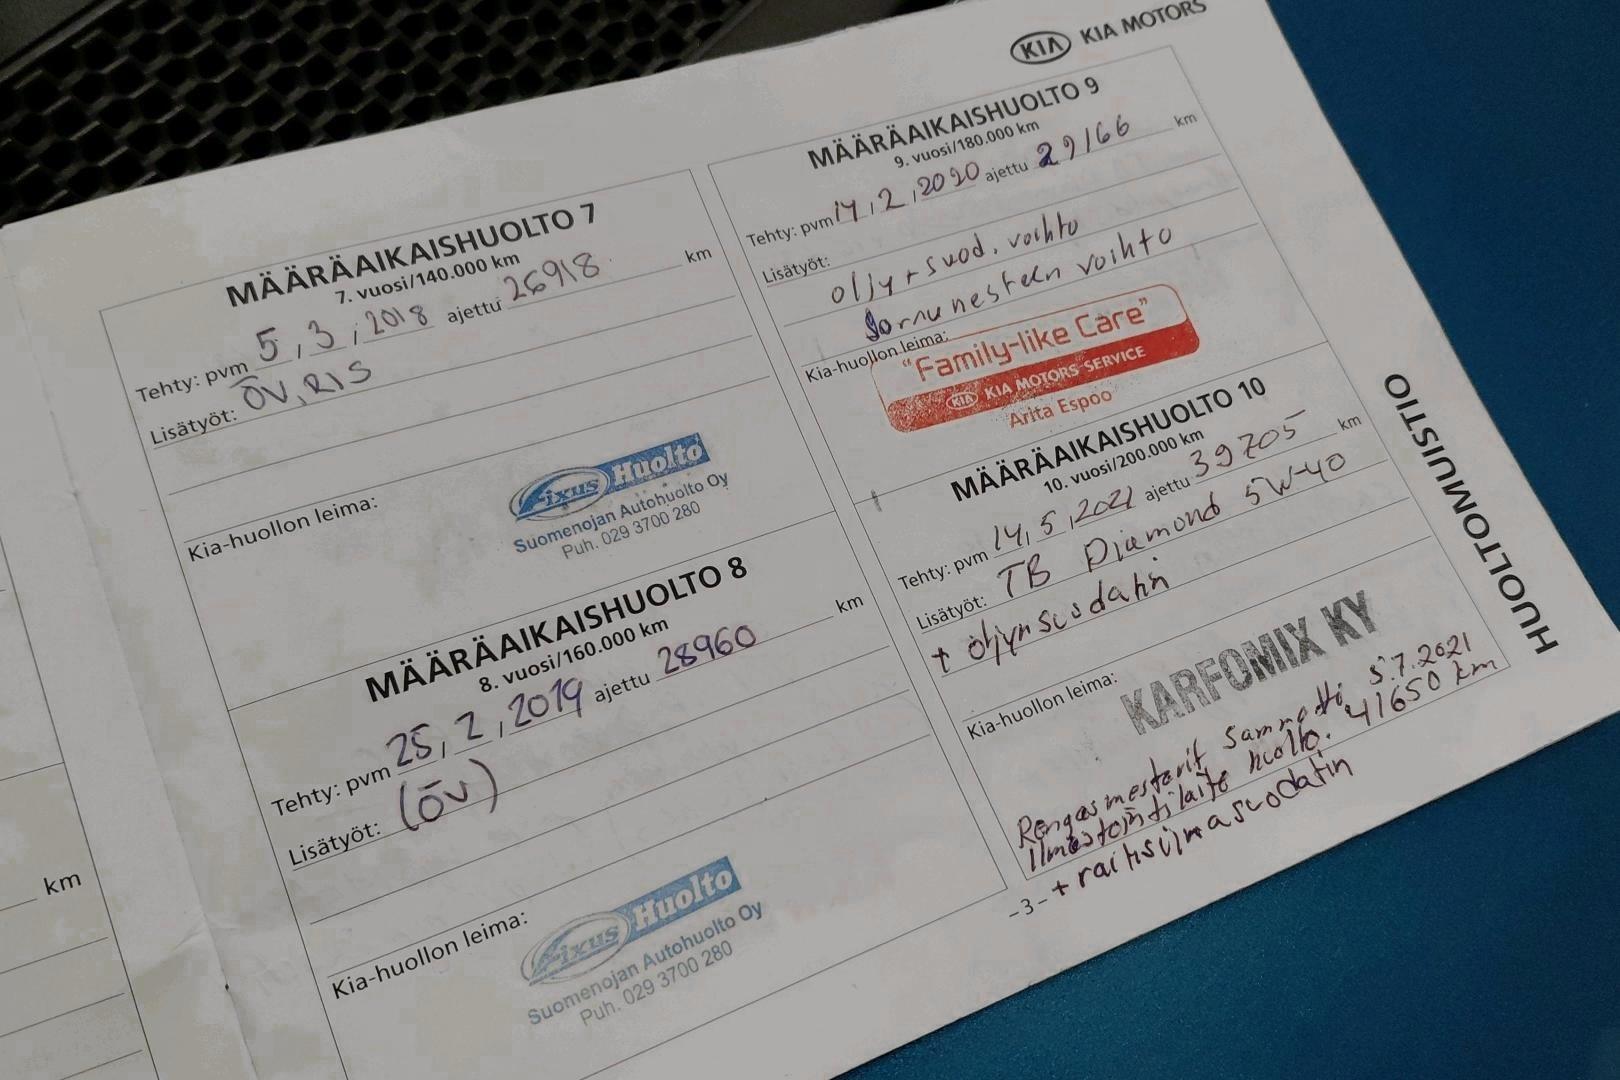 KIA KIA MOTORS
MÄÄRÄAIKAISHUOLTO 7
7. vuosi/140.000 km
Tehty: pvm 5,3,2018 ajettu 26918 km
Lisätyöt: ÖV, RIS
Kia-huollon leima:
Fixus Huolto
Suomenojan Autohuolto Oy
Puh. 029 3700 280
MÄÄRÄAIKAISHUOLTO 8
8. vuosi/160.000 km
Tehty: pvm 25,2,2019 ajettu 28960 km
Lisätyöt: (ÖV)
Kia-huollon leima:
Fixus Huolto
Suomenojan Autohuolto Oy
Puh. 029 3700 280
MÄÄRÄAIKAISHUOLTO 9
9. vuosi/180.000 km
Tehty: pvm 14,2,2020 ajettu 29166 km
Lisätyöt:
öljy + suod. vaihto
Jarrunesteen vaihto
Kia-huollon leima:
"Family-like Care"
KIA KIA MOTORS SERVICE
Arita Espoo
MÄÄRÄAIKAISHUOLTO 10
10. vuosi/200.000 km
Tehty: pvm 14,5,2021 ajettu 39705 km
Lisätyöt: TB Diamond 5W-40
+ öljynsuodatin
Kia-huollon leima:
KARFOMIX KY
Rengasmestarit Sammatti 5.7.2021
Ilmastointilaite huolto. 41650 km
+ raitisilmasuodatin
-3-
HUOLTOMUISTIO
km